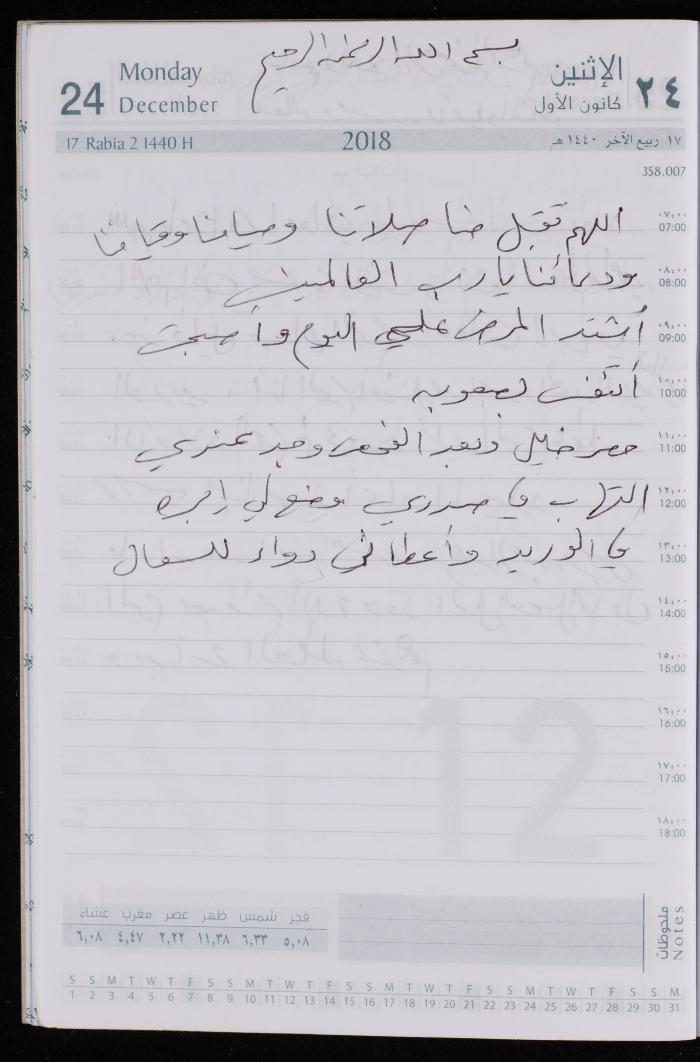 بسم الله الرحمن الرحيم
Monday الإثنين
24 December كانون الأول ٢٤
17 Rabia 2 1440 H 2018 ١٧ ربيع الآخر ١٤٤٠ هـ
358.007
اللهم تقبل منا صلاتنا وصيامنا وقيامنا
٠٧:٠٠
07:00
ودعائنا يا رب العالمين
٠٨:٠٠
08:00
أشتد المرض علي اليوم وأصبحت
٠٩:٠٠
09:00
أتنفس بصعوبه
١٠:٠٠
10:00
حضر خليل وبعد الفحص وجد عندي
١١:٠٠
11:00
التهاب في صدري وضع لي إبره
١٢:٠٠
12:00
في الوريد وأعطاني دواء للسعال
١٣:٠٠
13:00
١٤:٠٠
14:00
١٥:٠٠
15:00
١٦:٠٠
16:00
١٧:٠٠
17:00
١٨:٠٠
18:00
12
فجر شمس ظهر عصر مغرب عشاء
٥,٠٨ ٦,٣٣ ١١,٣٨ ٢,٢٢ ٤,٤٧ ٦,٠٨
ملحوظات
Notes
S S M T W T F S S M T W T F S S M T W T F S S M T W T F S S M
1 2 3 4 5 6 7 8 9 10 11 12 13 14 15 16 17 18 19 20 21 22 23 24 25 26 27 28 29 30 31